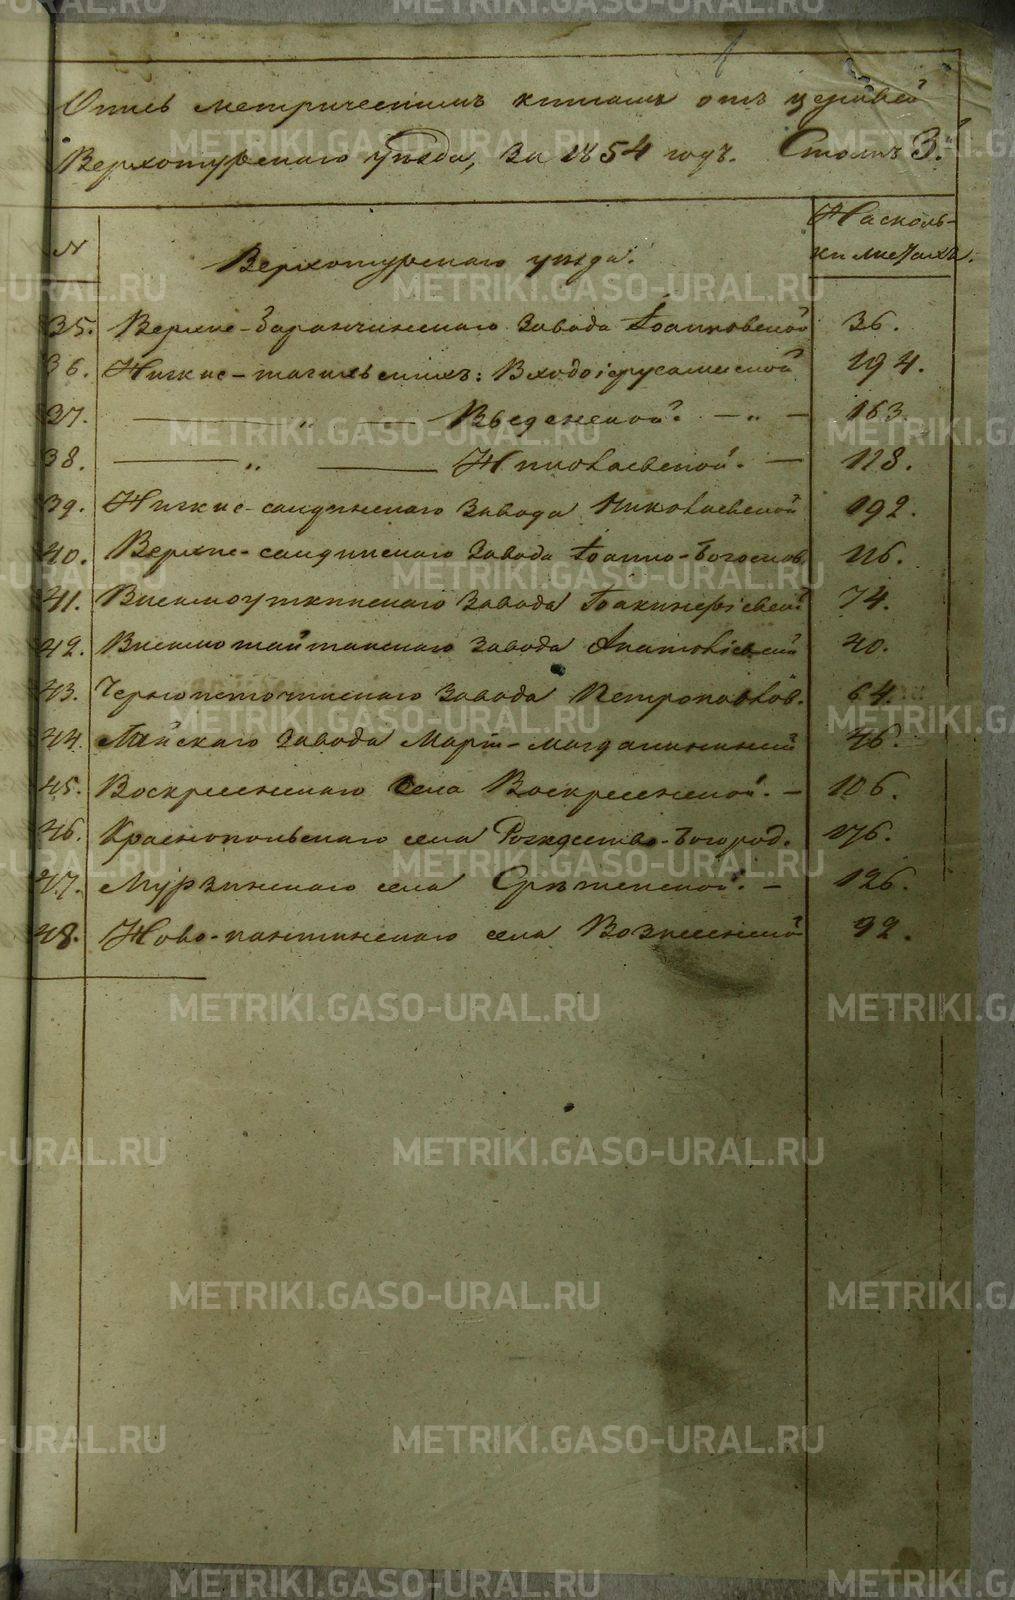 Опись метрическимъ книгамъ отъ церквей
Верхотурскаго уѣзда, за 1854 годъ. Столъ 3й.
N
Верхотурскаго уѣзда.
На сколь-
ки листахъ.
35. Верхне-Баранчинскаго завода Іоанновской 36.
36. Нижне-тагильскихъ: Входоіерусалимской 194.
37. — „ — Введенской. — „ — 163.
38. — „ — Николаевской. — 128.
39. Нижне-салдинскаго завода Николаевской 192.
40. Верхне-салдинскаго завода Іоанно-Богослов. 116.
41. Висимоуткинскаго завода Іоакинфіевской 74.
42. Висимошайтанскаго завода Анатоліевской 40.
43. Черноисточинскаго завода Петропавлов. 64.
44. Лайскаго завода Маріи-Магдалининской 46.
45. Воскресенскаго села Воскресенской. — 106.
46. Краснопольскаго села Рождество-Богород. 176.
47. Мурзинскаго села Срѣтенской. — 126.
48. Ново-паньшинскаго села Вознесенской 92.
METRIKI.GASO-URAL.RU